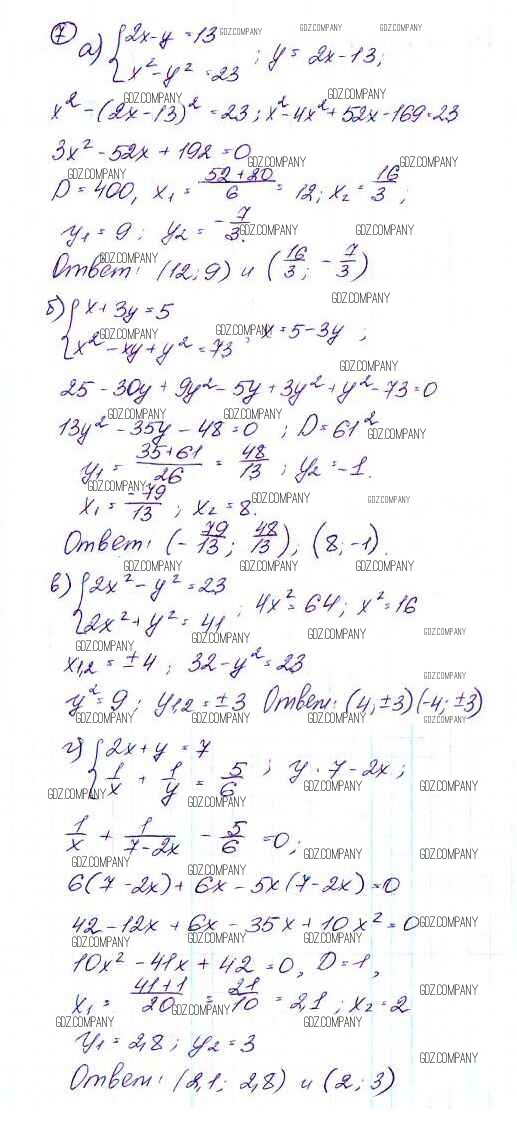 7
а) { 2x - y = 13
x² - y² = 23 ; y = 2x - 13;
x² - (2x - 13)² = 23; x² - 4x² + 52x - 169 = 23
3x² - 52x + 192 = 0
D = 400, x₁ = (52+20)/6 = 12; x₂ = 16/3 ;
y₁ = 9; y₂ = -7/3.
Ответ: (12; 9) и (16/3; -7/3)
б) { x + 3y = 5
x² - xy + y² = 73 ; x = 5 - 3y ;
25 - 30y + 9y² - 5y + 3y² + y² - 73 = 0
13y² - 35y - 48 = 0 ; D = 61²
y₁ = (35+61)/26 = 48/13 ; y₂ = -1.
x₁ = -79/13 ; x₂ = 8.
Ответ: (-79/13; 48/13); (8; -1).
в) { 2x² - y² = 23
2x² + y² = 41 ; 4x² = 64; x² = 16
x₁,₂ = ±4 ; 32 - y² = 23
y² = 9 ; y₁,₂ = ±3 Ответ: (4; ±3) (-4; ±3)
г) { 2x + y = 7
1/x + 1/y = 5/6 ; y · 7 - 2x ;
1/x + 1/(7-2x) - 5/6 = 0;
6(7 - 2x) + 6x - 5x(7 - 2x) = 0
42 - 12x + 6x - 35x + 10x² = 0
10x² - 41x + 42 = 0, D = 1,
x₁ = (41+1)/20 = 21/10 = 2,1 ; x₂ = 2
y₁ = 2,8 ; y₂ = 3
Ответ: (2,1; 2,8) и (2; 3)
GDZ.COMPANY